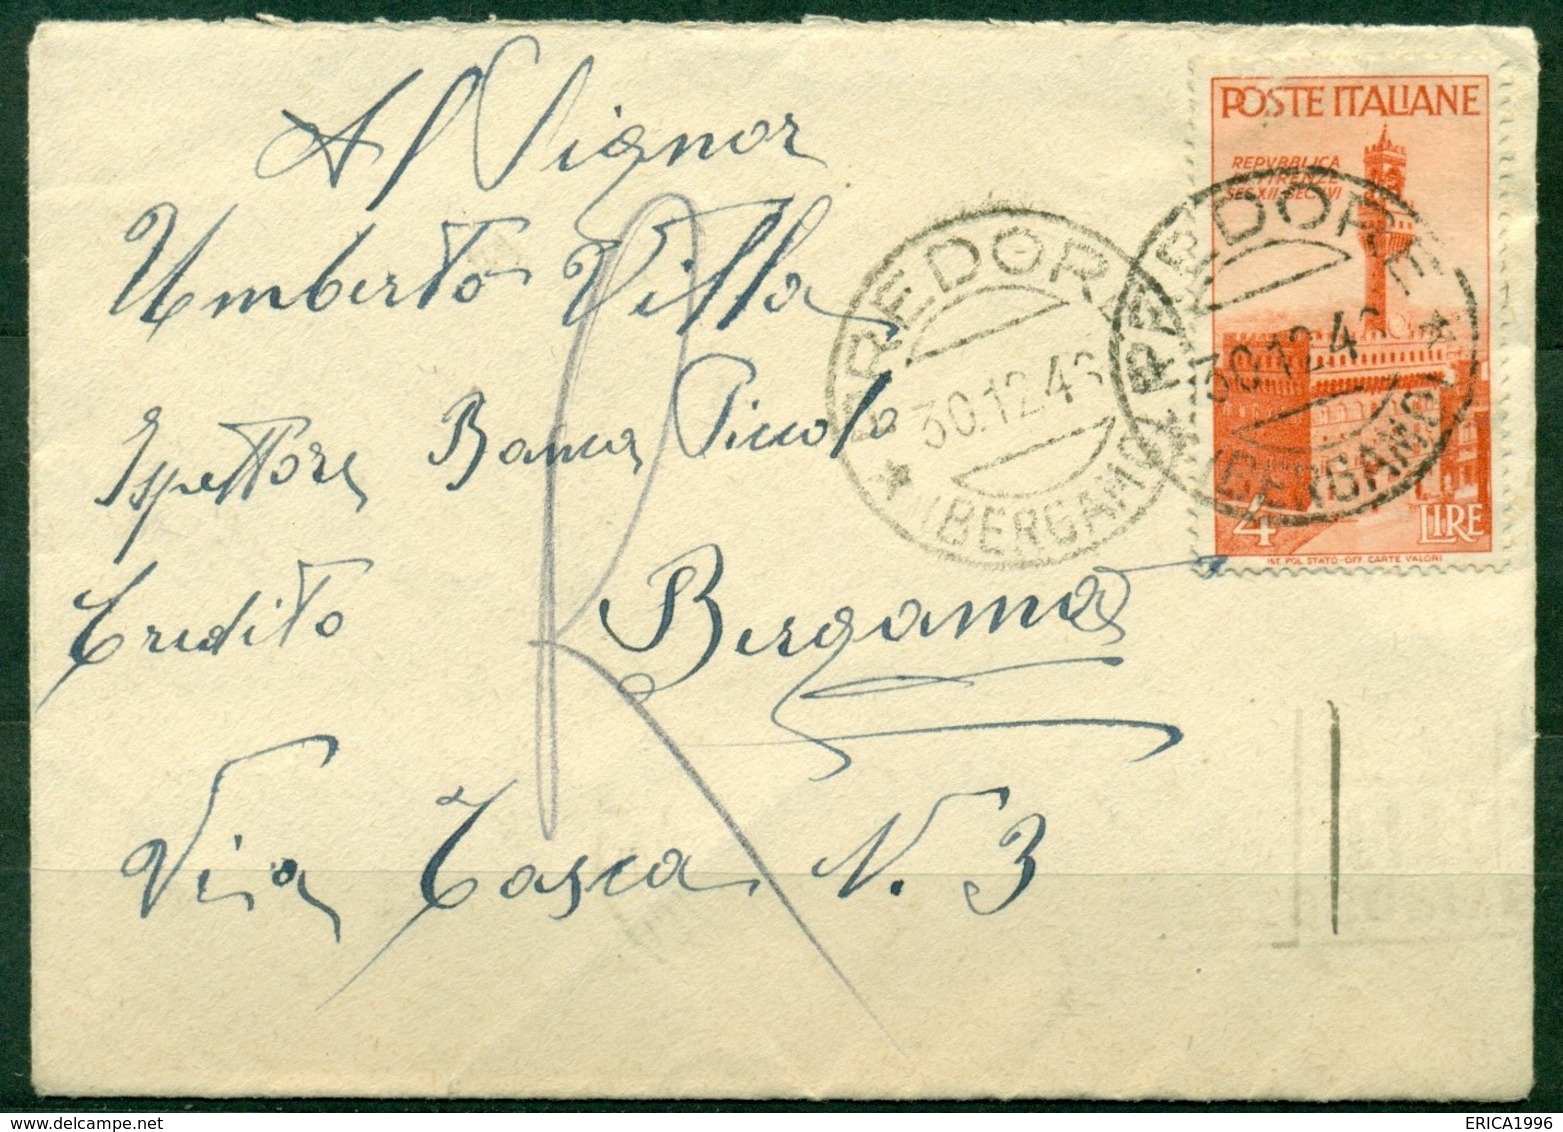 Al Signor
Umberto Villa
Ispettore Banca Piccolo
Credito Bergamo
Via Tasca N. 3
R
POSTE ITALIANE
REPVBBLICA
FIRENZE
SEC XII - SEC XVI
4 LIRE
IST. POL. STATO - OFF. CARTE VALORI
PREDORE
30.12.46
(BERGAMO)
PREDORE
30.12.46
(BERGAMO)
ERICA1996